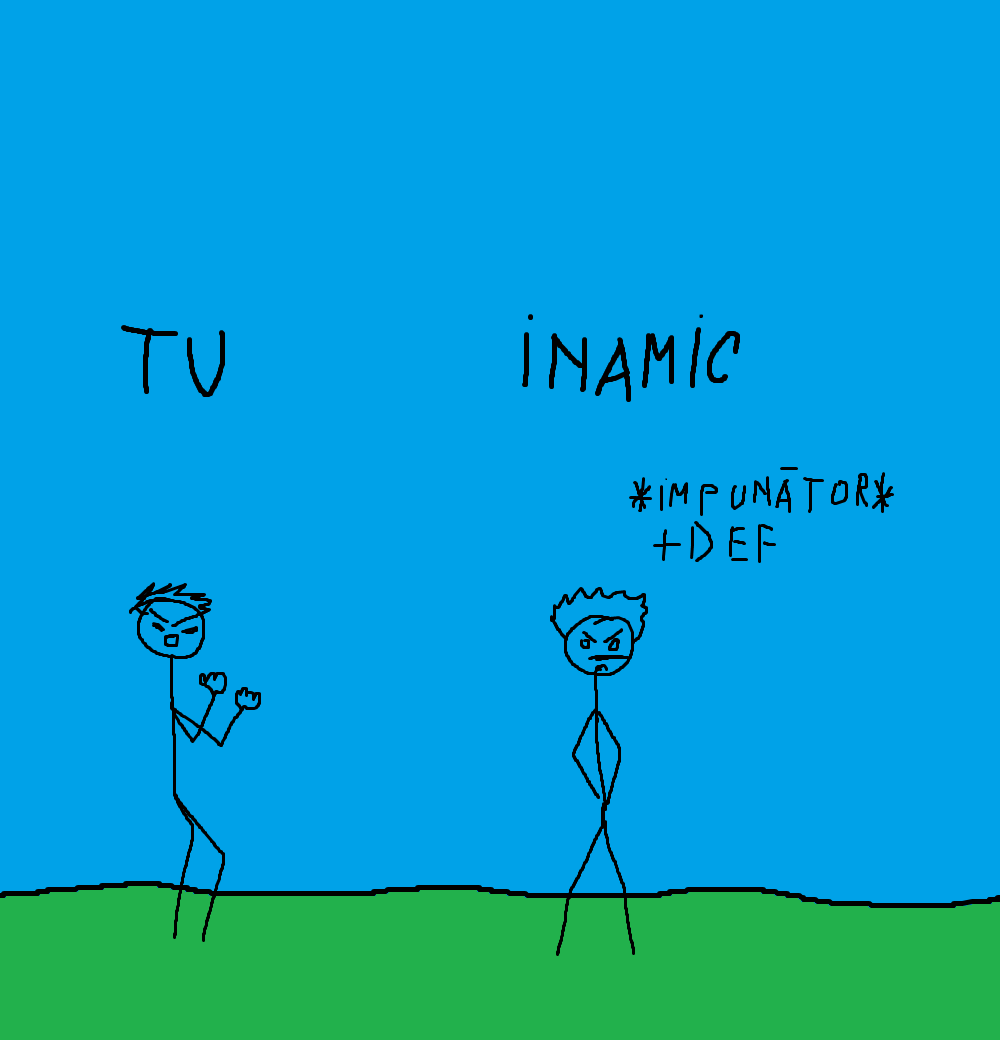 TU
İNAMİC
*IMPUNĀTOR*
+DEF